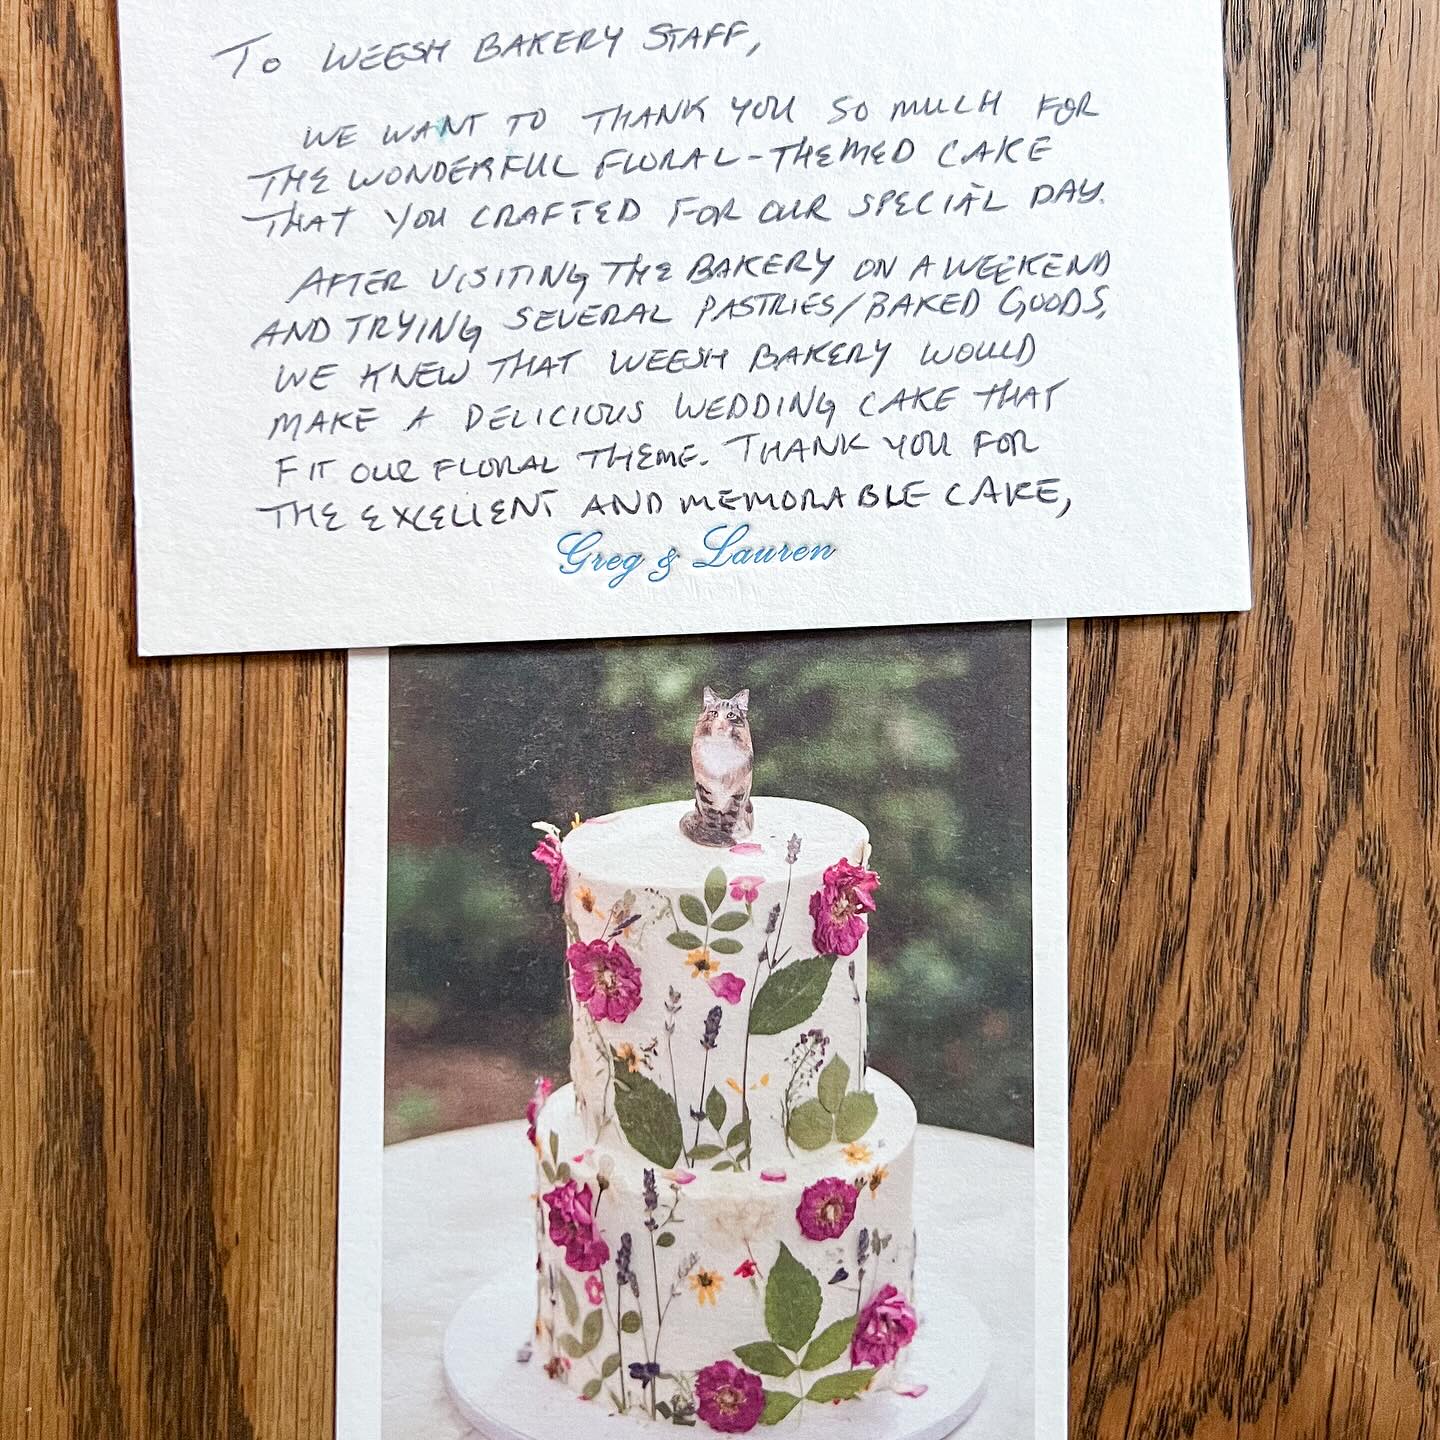 TO WEESH BAKERY STAFF,
WE WANT TO THANK YOU SO MUCH FOR
THE WONDERFUL FLORAL-THEMED CAKE
THAT YOU CRAFTED FOR OUR SPECIAL DAY.
AFTER VISITING THE BAKERY ON A WEEKEND
AND TRYING SEVERAL PASTRIES/BAKED GOODS,
WE KNEW THAT WEESH BAKERY WOULD
MAKE A DELICIOUS WEDDING CAKE THAT
FIT OUR FLORAL THEME. THANK YOU FOR
THE EXCELLENT AND MEMORABLE CAKE,
Greg & Lauren